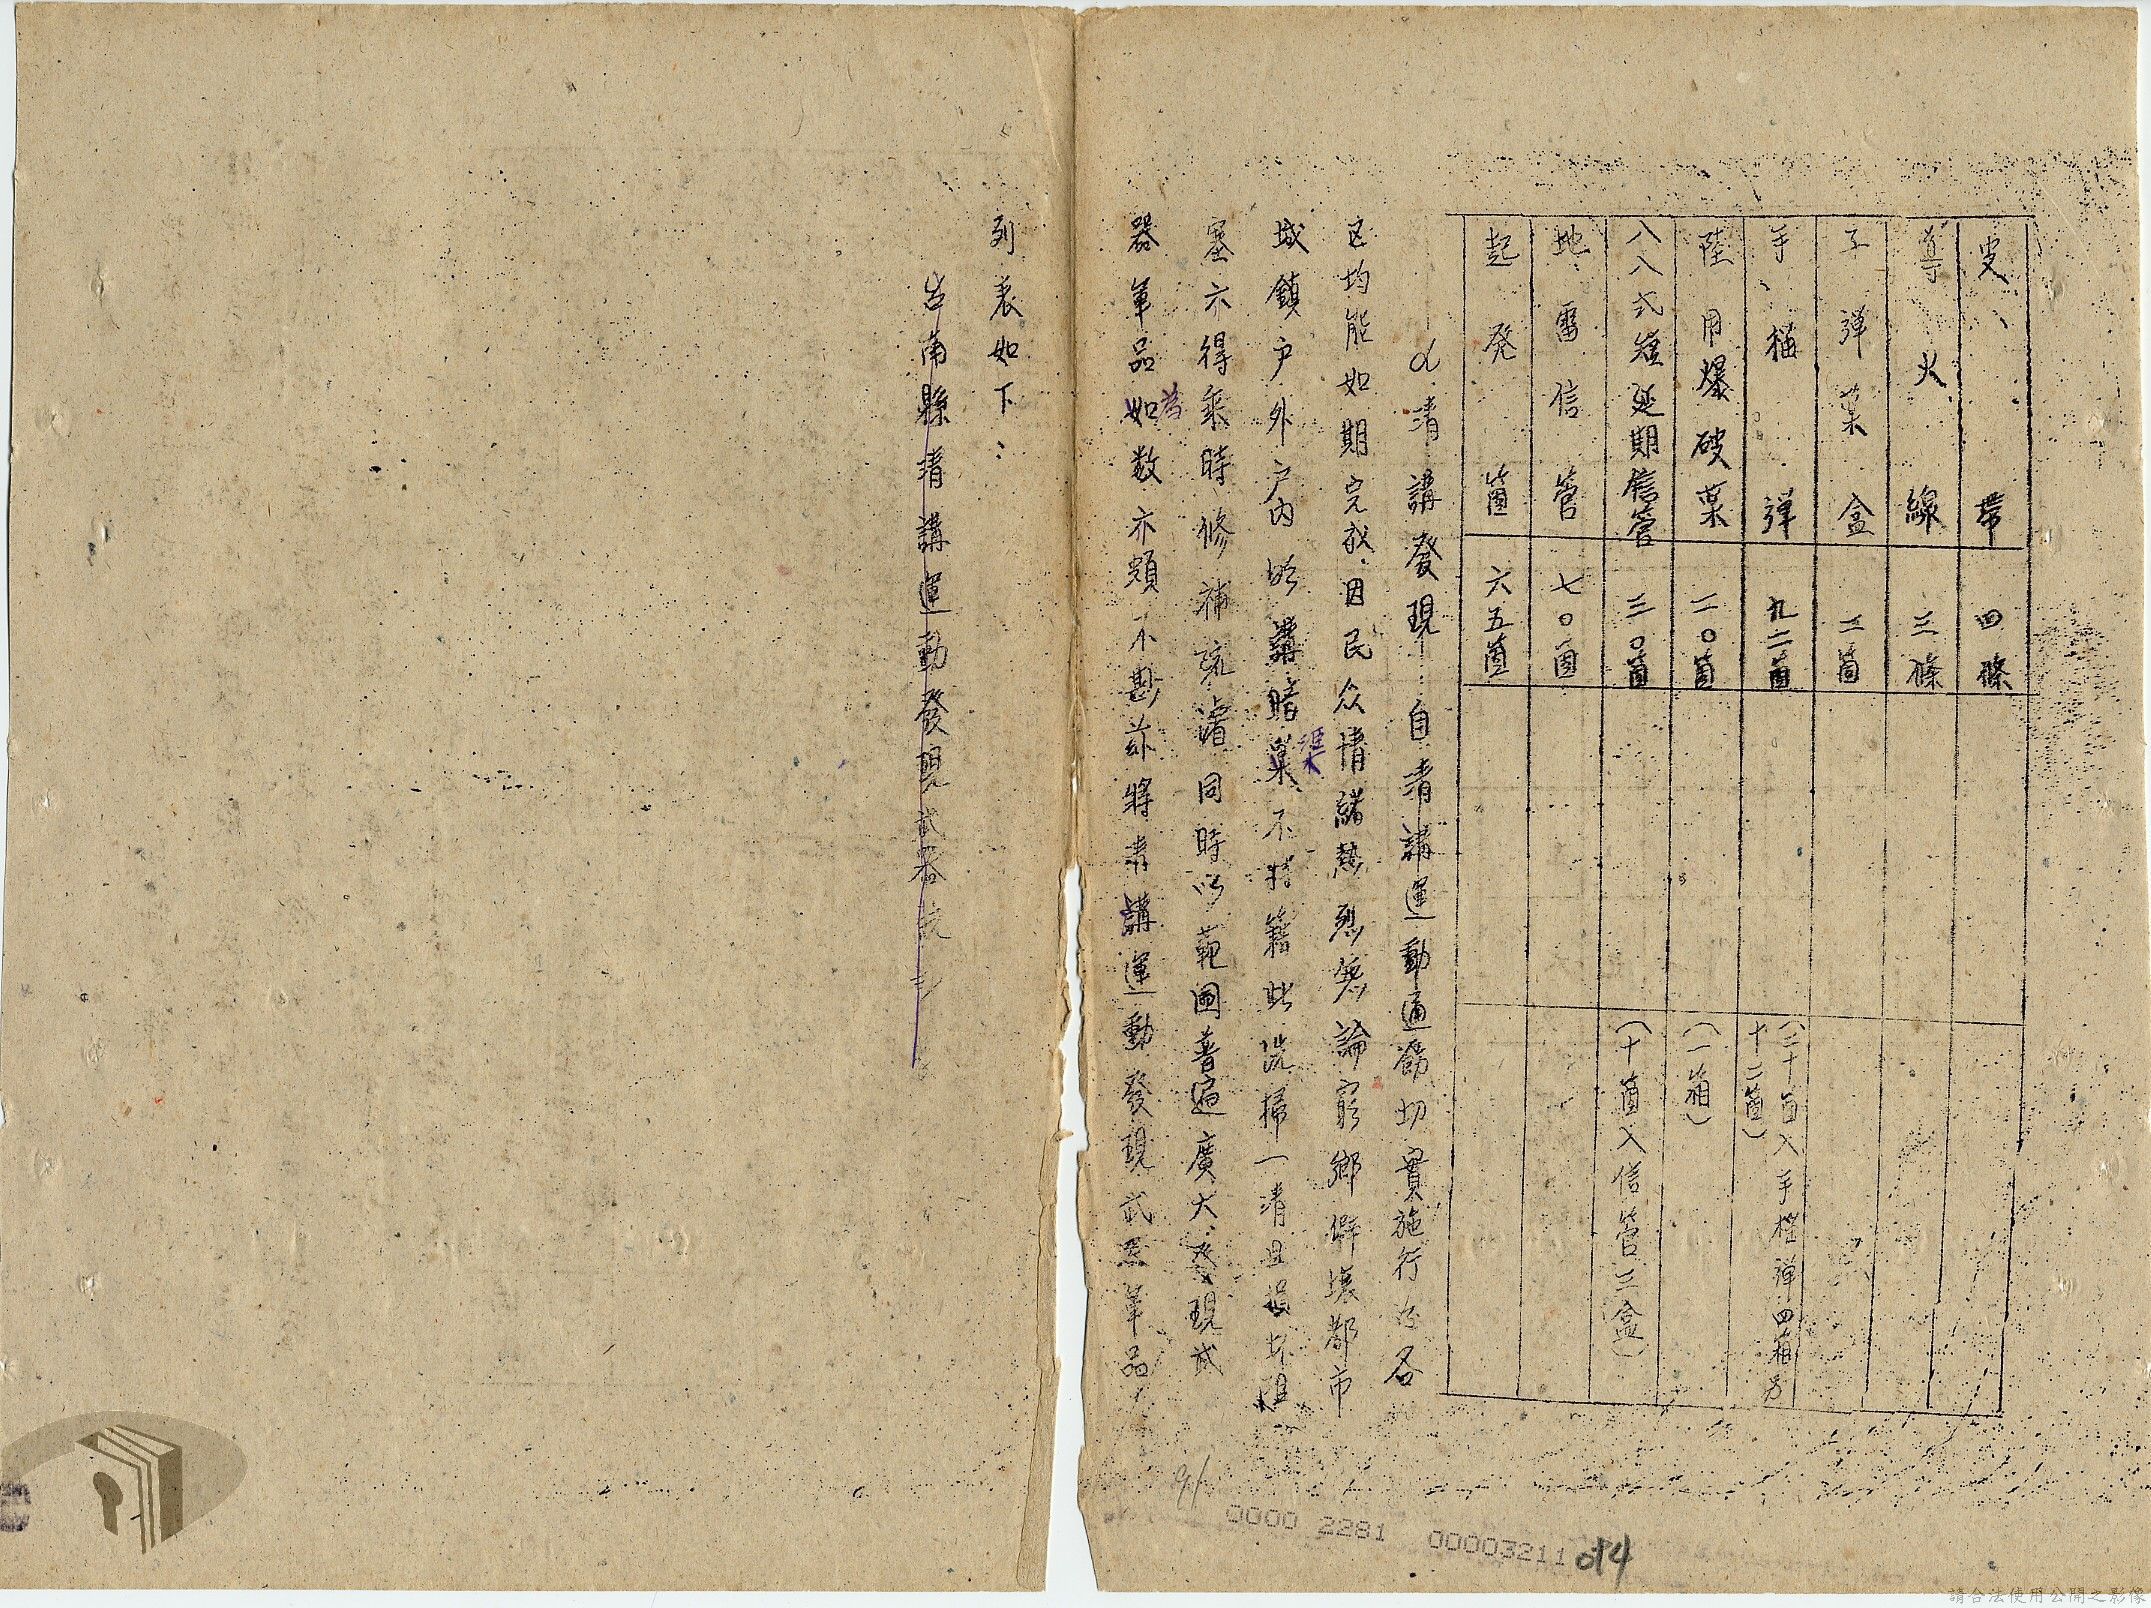 皮帶 四條
導火線 三條
子彈葉盒 二箇
手榴彈 九二箇 (二十箇入手榴彈四箱另十二箇)
陸用爆破葉 二〇箇 (一箱)
八八式短延期信管 三〇箇 (十箇入信管三盒)
地雷信管 七〇箇
起発箇 六五箇
d.清溝發現——自清溝運動通飭切實施行后各
区均能如期完成.因民众情緒熱烈無論窮鄉僻壤都市
城鎮户外户内明溝暗巢渠不特籍此洗掃一清且損坏阻
塞亦得乘時修補疏濬同時以範圍普遍廣大.發現武
器軍品如為数亦頗不尠茲將清溝運動發現武器軍品
列表如下：
台南縣清溝運動發現武器統計
91
0000 2281 00003211 014
請合法使用公開之影像